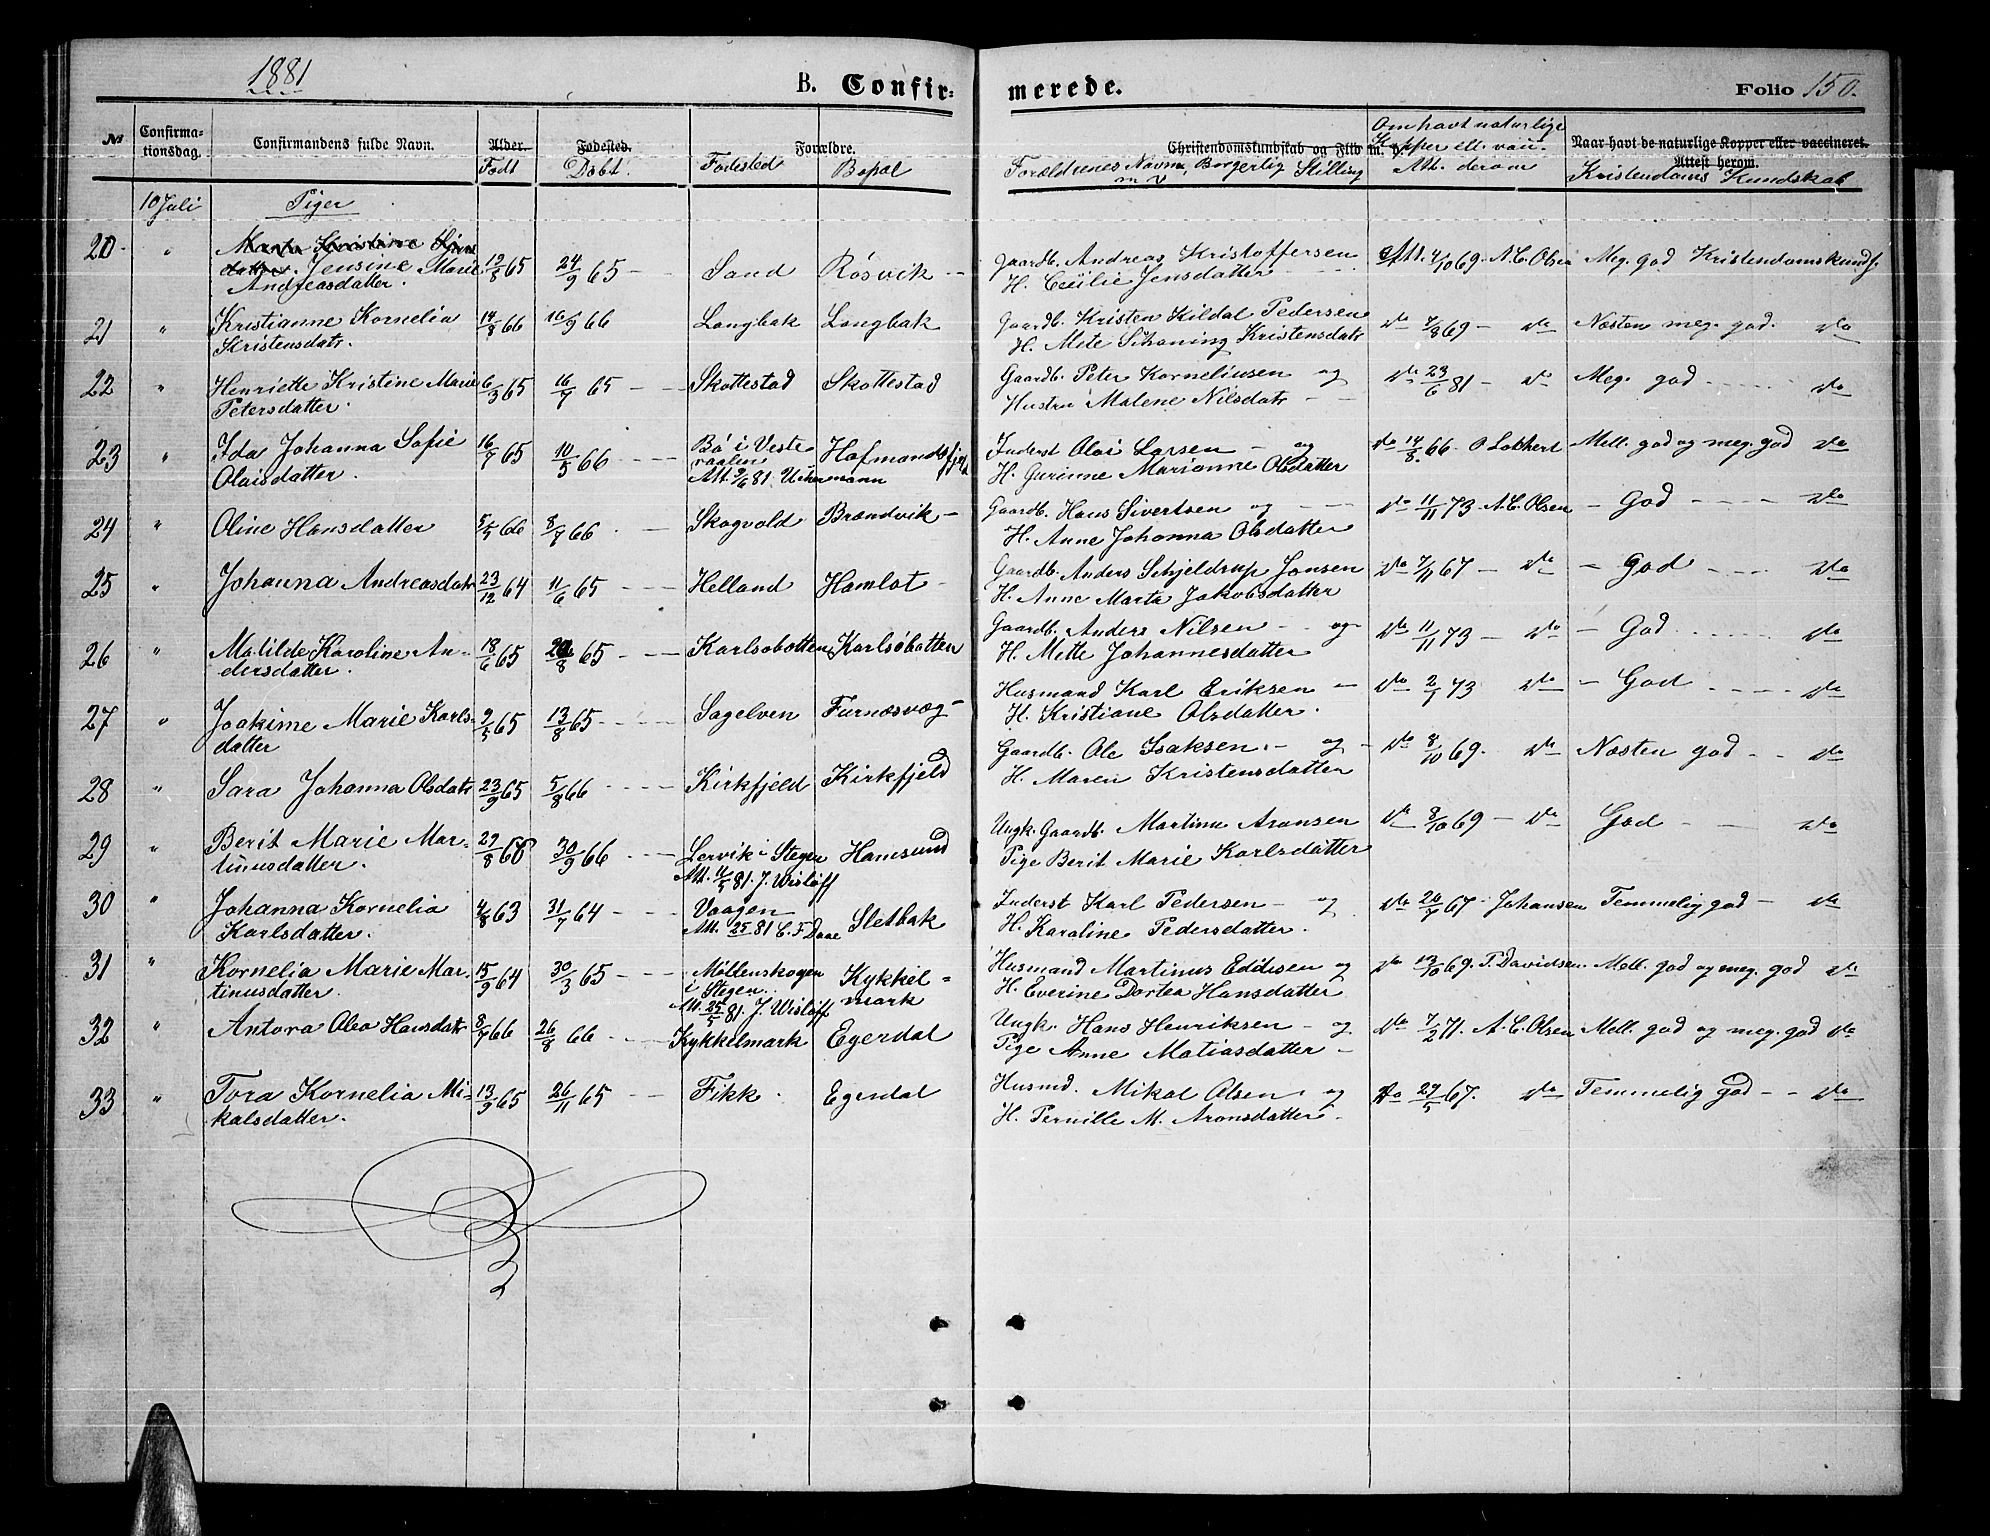 1881
B. Confir=
merede.
Folio 150.
№
Confirma-
tionsdag.
Confirmandens fulde Navn.
Alder.
Födt
Fødested.
Döbt.
Forældre.
Födested
Bopæl
Christendomskundskab og Flid m. v.
Forældrenes Navne, Borgerlig Stilling
m v
Om havt naturlige
Kopper ell. vacc.
Att. derom
Naar havt de naturlige Kopper eller vaccineret.
Attest herom.
Kristendoms Kundskab
10 Juli
Piger
20 " Jensine Marie 12/8 65 24/9 65 - Sand Rösvik - Gaardb. Andreas Kristoffersen Att. 4/10 69. A. C. Olsen Meg. god Kristendomskundsk.
Andreasdatter. H. Cecilie Jensdatter
21 " Kristianne Kornelia 14/8 66 16/9 66 Langbak Langbak Gaardb. Kristen Kildal Pedersen do 7/8 69 - do Næsten meg. god. do
Kristensdatr. H. Mete Schøning Kristensdatr
22 " Henriette Kristine Marie 6/3 65 16/7 65 - Skottestad Skottestad Gaardb. Peter Korneliusen og do 23/6 81 - do Meg. god do
Petersdatter. Hustru Malene Nilsdatr
23 " Ida Johanna Sofie 16/7 65 10/5 66 Bö i Veste- Hofmandsfjeld Inderst Olai Larsen - og do 14/8 66. O Lokkert Mell. god og meg. god do
Olaisdatter. raalen H. Gurinne Marianne Olsdatter
Att. 9/6 81. Uchermann
24 " Oline Hansdatter 5/5 66 8/7 66 - Skogvold Brændvik - Gaardb. Hans Sivertsen og do 11/11 73 - A. C. Olsen - God do
H. Anne Johanna Olsdatter
25 " Johanna Andreasdatr 23/12 64 11/6 65 Helland Hamlot - Gaardb. Anders Schjeldrup Jonsen do 7/11 67 - do - God do
H. Anne Marta Jakobsdatter
26 " Matilde Karoline An- 18/6 65 8 65 Karlsobotten Karlsöbotten Gaardb. Anders Nilsen og do 11/11 73 - do - God do
dersdatter. H. Mette Johannesdatter
27 " Joakime Marie Karls- 9/5 65 13/8 65 Sagelven Furnæsvæg - Husmand Karl Eriksen - do 2/7 73 do - God do
datter H. Kristiane Olsdatter.
28 " Sara Johanna Olsdatr 23/9 65 5/8 66 Kirkfjeld Kirkfjeld Gaardb. Ole Isaksen. - og - do 8/10 69. do Næsten god do
H. Maren Kristensdatter
29 " Berit Marie Mar- 27/8 66 30/9 66 Lervik i Stegen Hamsund Ungk. Gaardb. Martinu Aronsen do 8/10 69 - do God do
tinusdatter. Att. 11/5 81. J. Wisløff Pige Berit Marie Karlsdatter
30 " Johanna Kornelia 4/8 63 31/7 64 Vaagen Sletbak Inderst Karl Pedersen - og do 20/7 67 - Johansen Temmelig god - do
Karlsdatter. Att. 25/5 81 C. F. Daae H. Karoline Pedersdatter.
31 " Kornelia Marie Mar- 15/9 64 30/3 65 Møllenskogen Kykkel= Husmand Martinus Eddisen og do 13/10 69. P. Davidsen Mell. god og meg. god do
tinusdatter. i Stegen. mark H. Everine Dortea Hansdatter
Att. 25/5 81. J. Wisløff
32 " Antora Olea Hansdatr 8/7 66 26/8 66 Kykkelmark Egerdal Ungk. Hans Henriksen - og do 7/2 71. A. C. Olsen Mell. god og meg. god do
Pige Anne Matiasdatter -
33 " Tora Kornelia Mi- 13/9 65 26/11 65 Fikk. Egerdal Husmd. Mikal Olsen og do 27/5 67. do Temmelig god - - do
kalsdatter. H. Pernille M. Aronsdatter